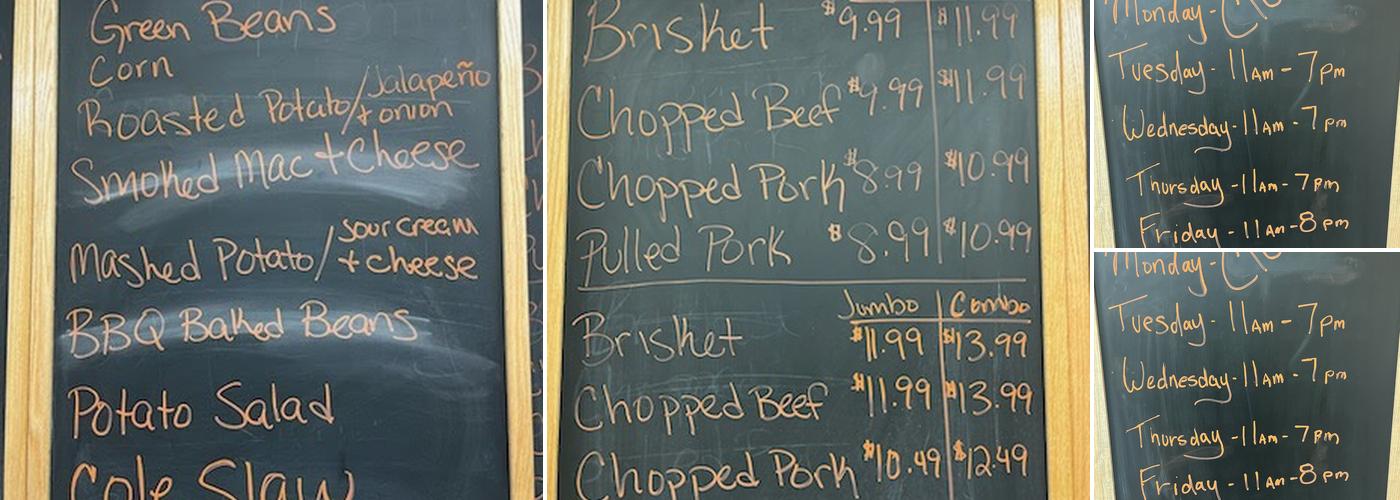 Green Beans
Corn
Roasted Potato/Jalapeño + onion
Smoked Mac + Cheese
Mashed Potato/sour cream + cheese
BBQ Baked Beans
Potato Salad
Cole Slaw
Brisket $9.99 $11.99
Chopped Beef $9.99 $11.99
Chopped Pork $8.99 $10.99
Pulled Pork $8.99 $10.99
Jumbo Combo
Brisket $11.99 $13.99
Chopped Beef $11.99 $13.99
Chopped Pork $10.49 $12.49
Monday -
Tuesday - 11Am - 7pm
Wednesday - 11Am - 7pm
Thursday - 11Am - 7pm
Friday - 11Am - 8pm
Monday -
Tuesday - 11Am - 7pm
Wednesday - 11Am - 7pm
Thursday - 11Am - 7pm
Friday - 11Am - 8pm